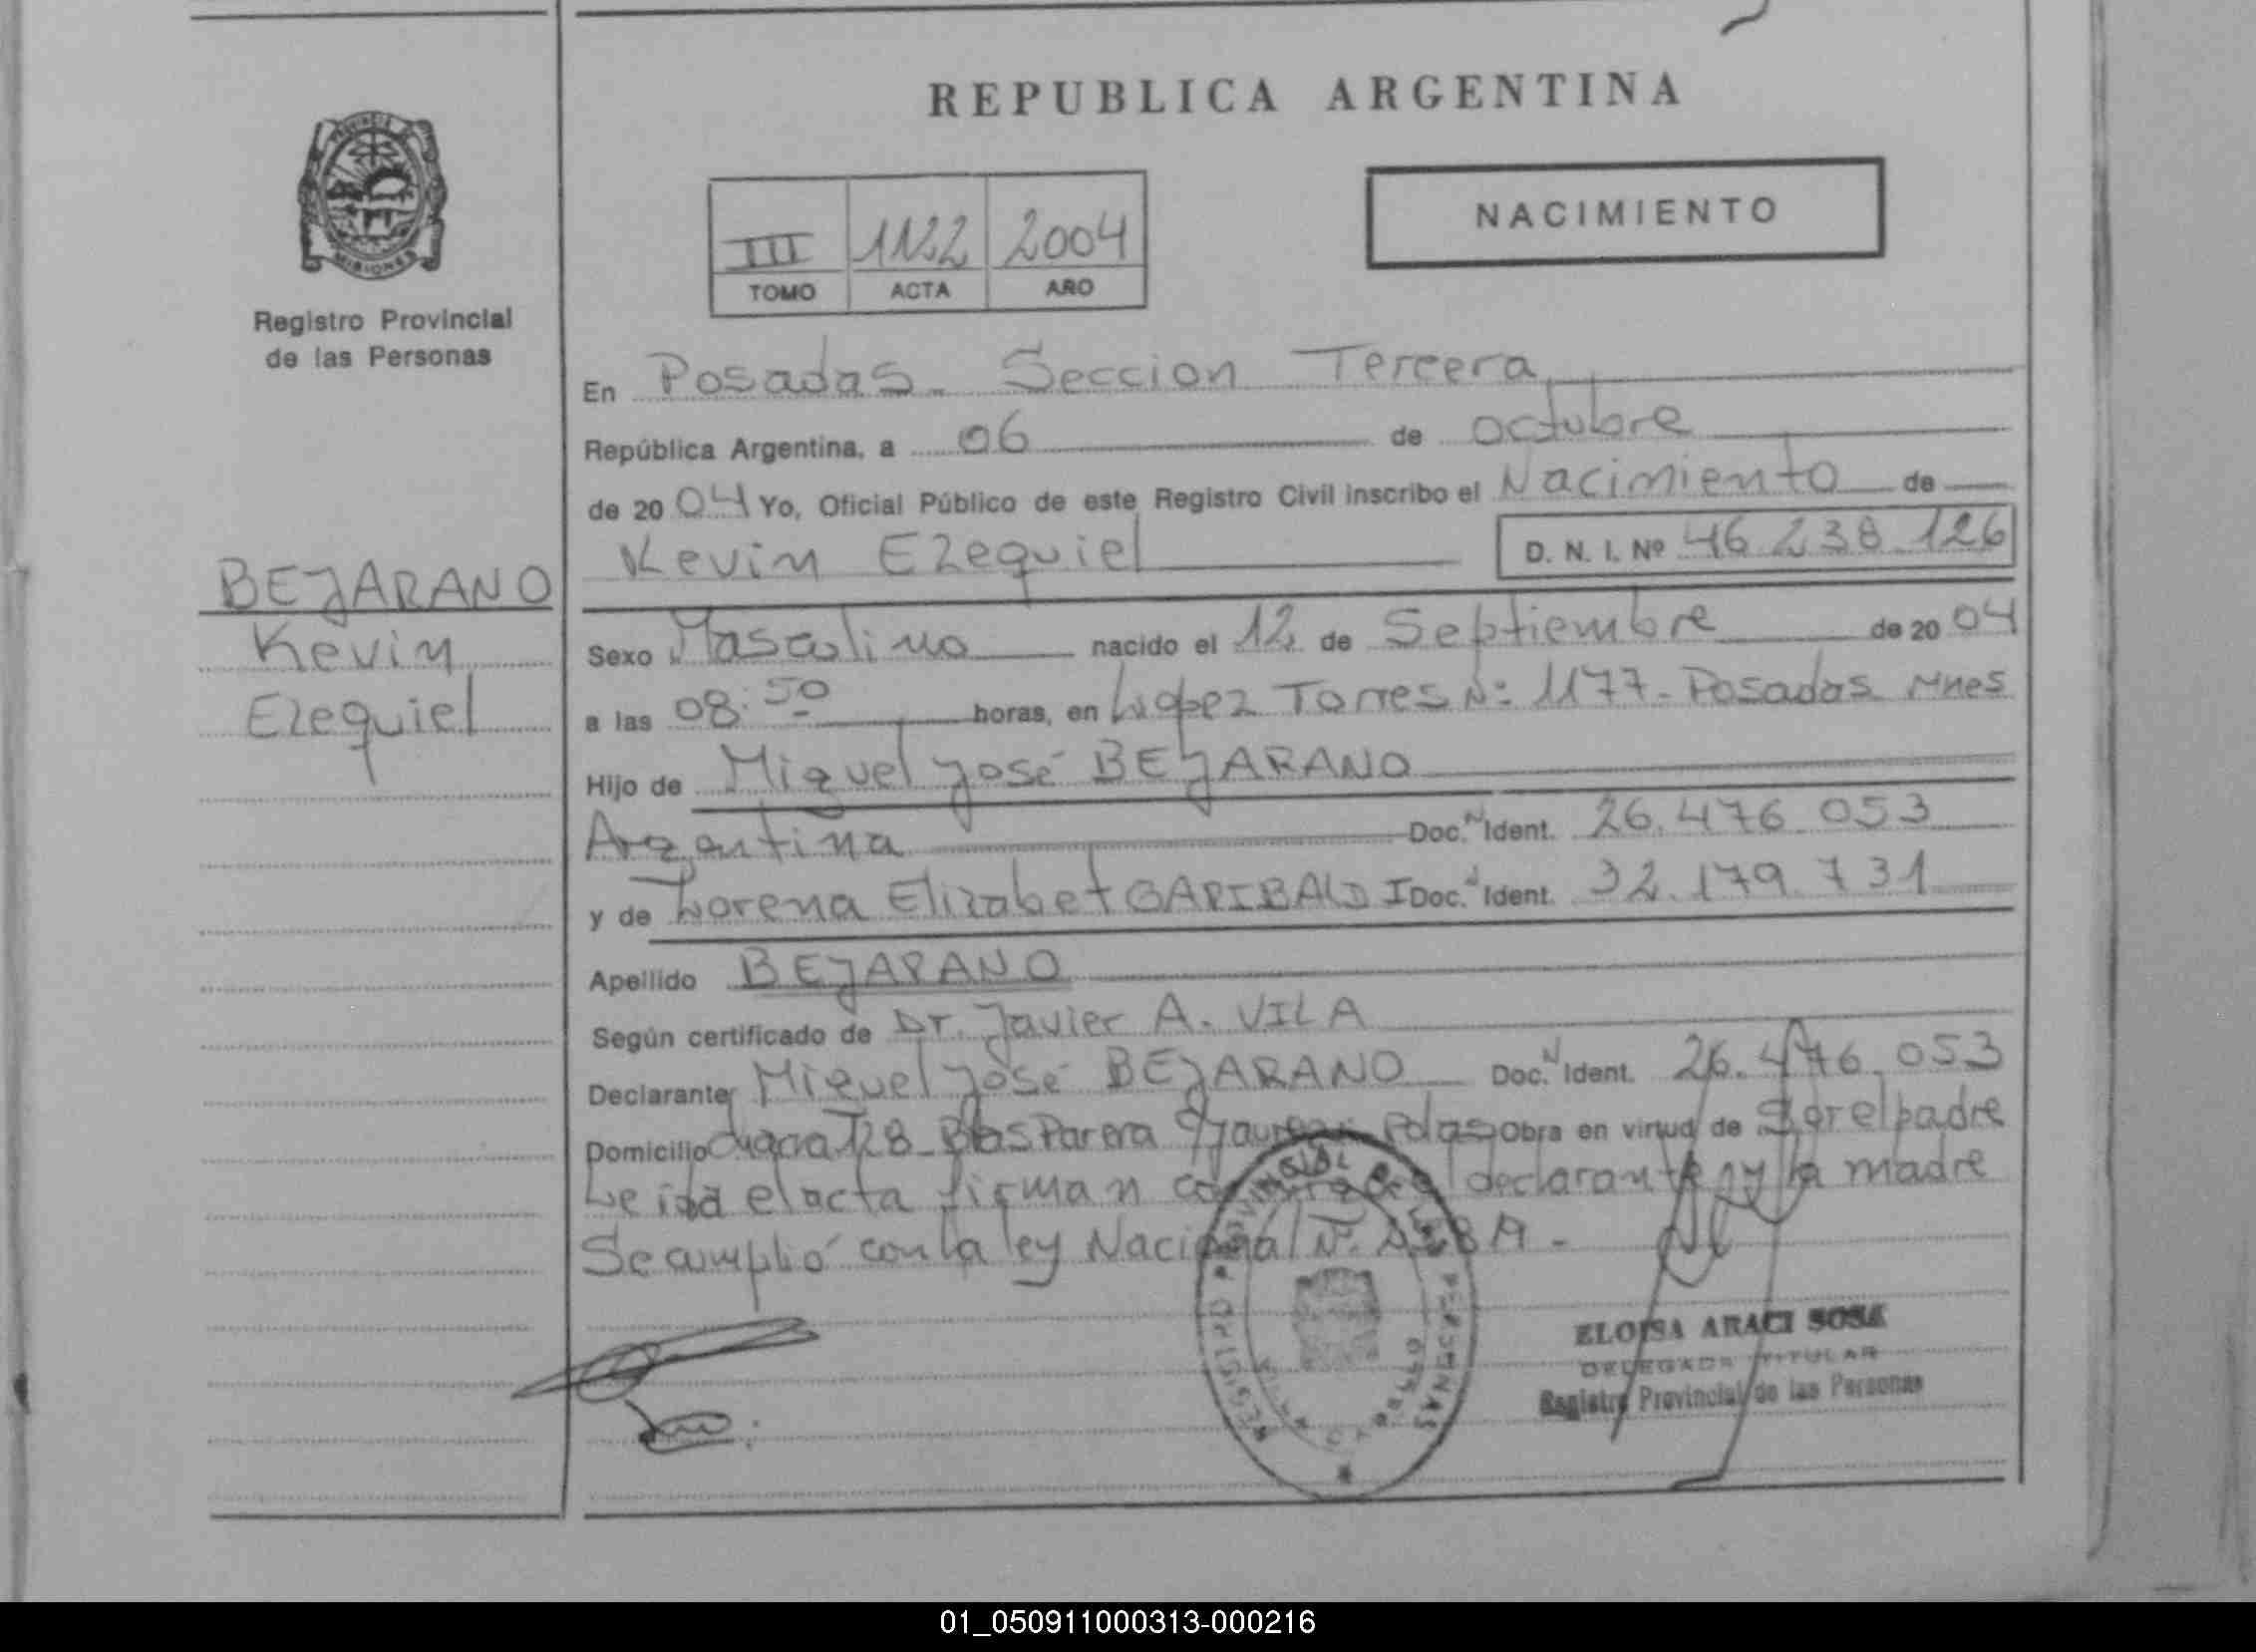 REPUBLICA ARGENTINA
PROVINCIA DE
MISIONES
Registro Provincial
de las Personas
III 1122 2004
TOMO ACTA AÑO
NACIMIENTO
En Posadas - Seccion Tercera
República Argentina, a 06 de octubre
de 2004 Yo, Oficial Público de este Registro Civil inscribo el Nacimiento de
Kevin Ezequiel D. N. I. Nº 46.238.126
BEJARANO
Kevin
Ezequiel
Sexo Masculino nacido el 12 de Septiembre de 2004
a las 08:50 horas, en López Torres Nº 1177 - Posadas Mnes
Hijo de Miguel José BEJARANO
Argentina Doc. N Ident. 26.476.053
y de Lorena Elizabet GARIBALDI Doc. Ident. 32.179.731
Apellido BEJARANO
Según certificado de Dr. Javier A. VILA
Declarante Miguel José BEJARANO Doc. N Ident. 26.476.053
Domicilio 128 - Blas Parera y Pdas Obra en virtud de Ser el padre
Leida el acta firman declarante y la madre
Se cumplió con la ley Nacional Nº
REGISTRO PROVINCIAL DE LAS PERSONAS
ELOISA ARACI SOSA
DELEGADA TITULAR
Registro Provincial de las Personas
01_050911000313-000216